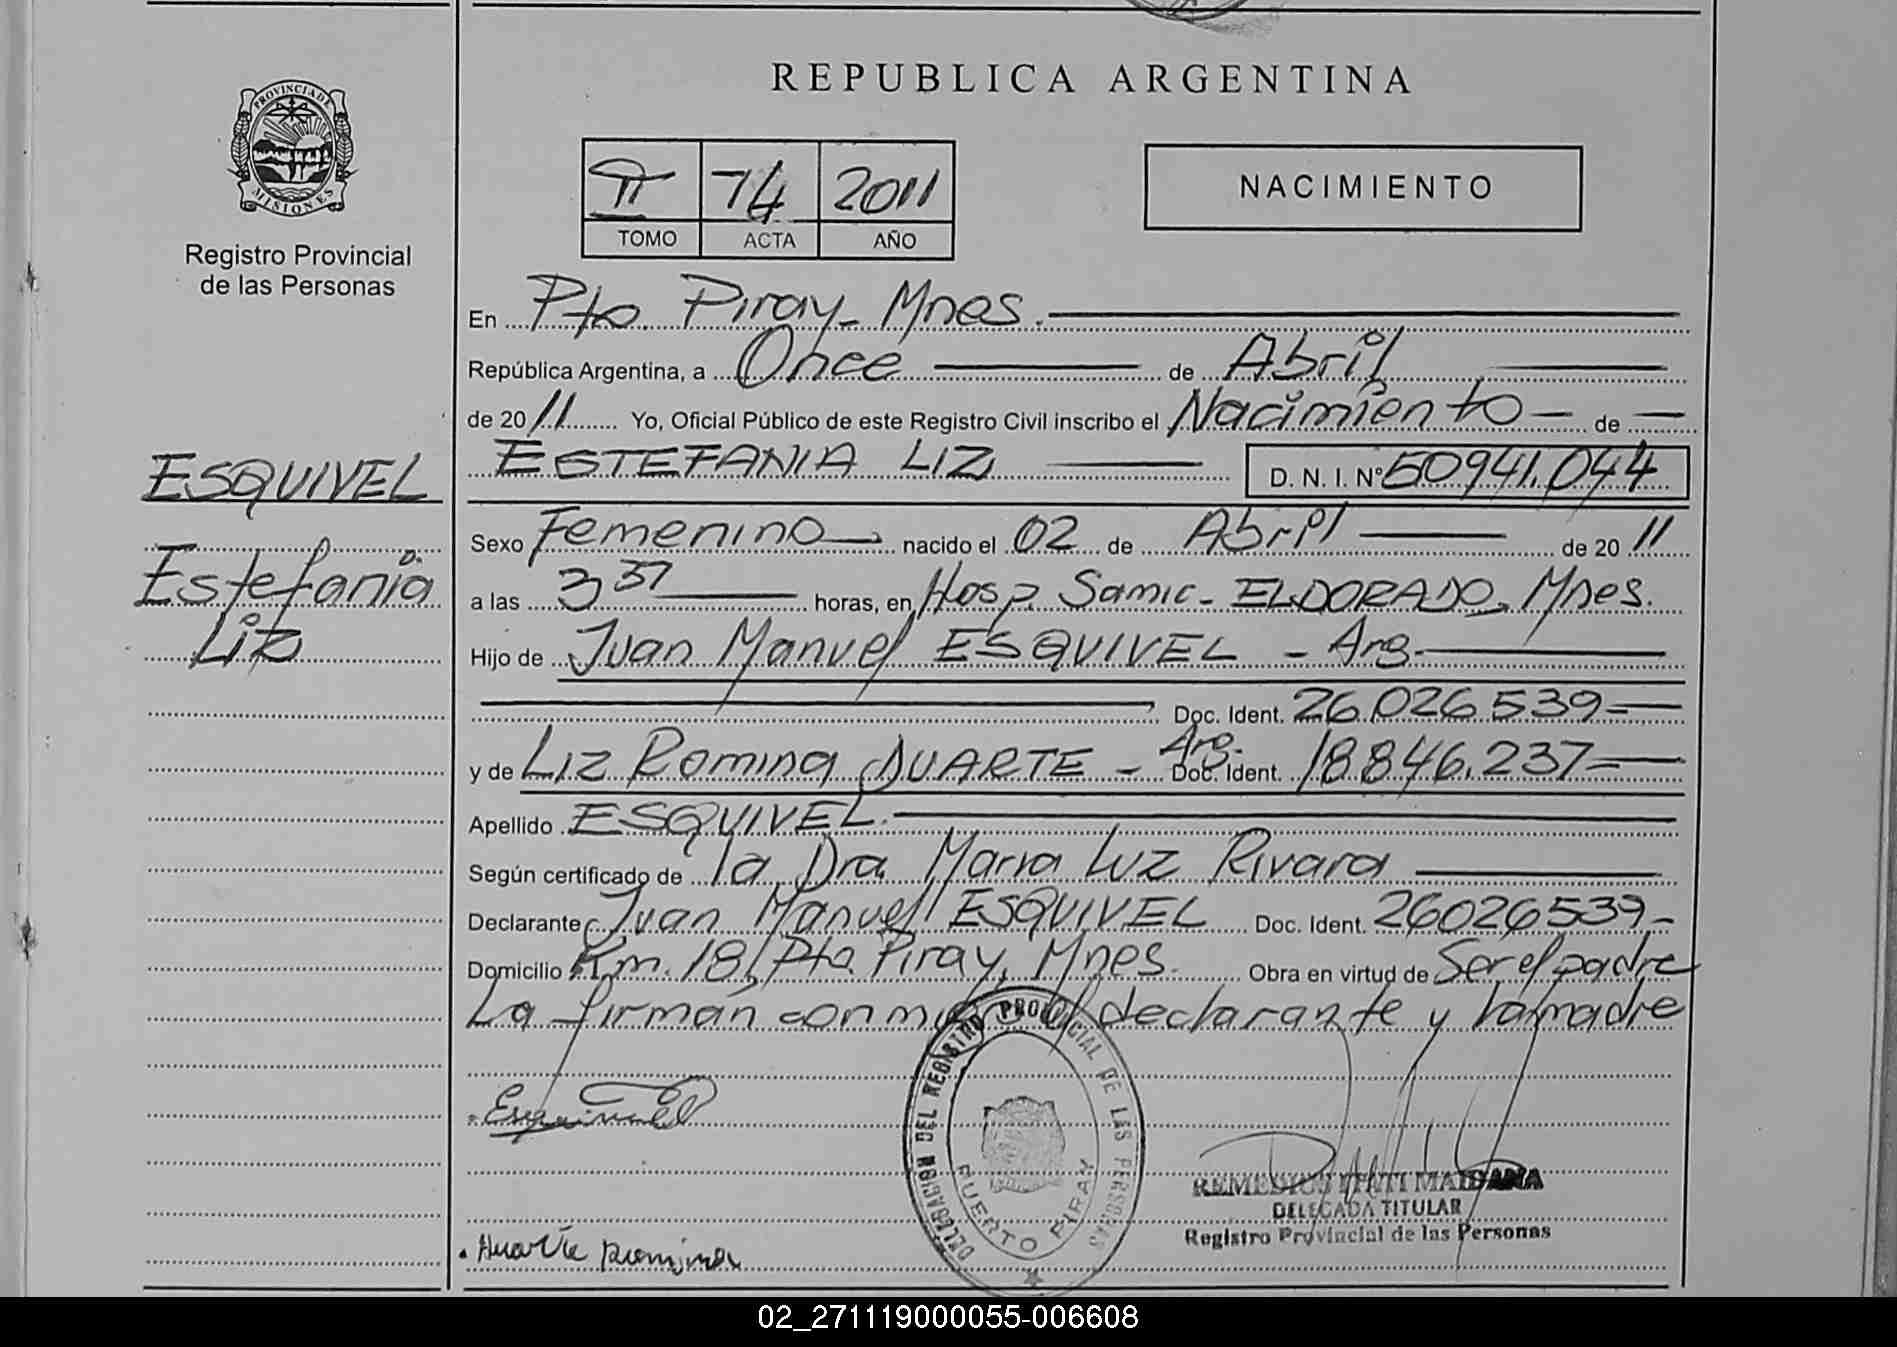 REPUBLICA ARGENTINA
PROVINCIA DE MISIONES
Registro Provincial
de las Personas
II 74 2011
TOMO ACTA AÑO
NACIMIENTO
En Pto Piray - Mnes.
República Argentina, a Once de Abril
de 2011 Yo, Oficial Público de este Registro Civil inscribo el Nacimiento de
ESTEFANIA LIZ D. N. I. Nº 50941.044
ESQUIVEL
Estefania
Liz
Sexo Femenino nacido el 02 de Abril de 2011
a las 3 37 horas, en Hosp. Samic - ELDORADO, Mnes.
Hijo de Juan Manuel ESQUIVEL - Arg.
Doc. Ident. 26.026.539=
y de Liz Romina DUARTE - Arg. Doc. Ident. 18.846.237=
Apellido ESQUIVEL.
Según certificado de la Dra Maria Luz Rivara
Declarante Juan Manuel ESQUIVEL Doc. Ident. 26026539-
Domicilio Km. 18, Pto. Piray, Mnes. Obra en virtud de Ser el padre
La firman conmigo el declarante y la madre
Esquivel
DELEGACION DEL REGISTRO PROVINCIAL DE LAS PERSONAS
PUERTO PIRAY
REMEDIOS ITATI MAIDANA
DELEGADA TITULAR
Registro Provincial de las Personas
Duarte Romina
02_271119000055-006608